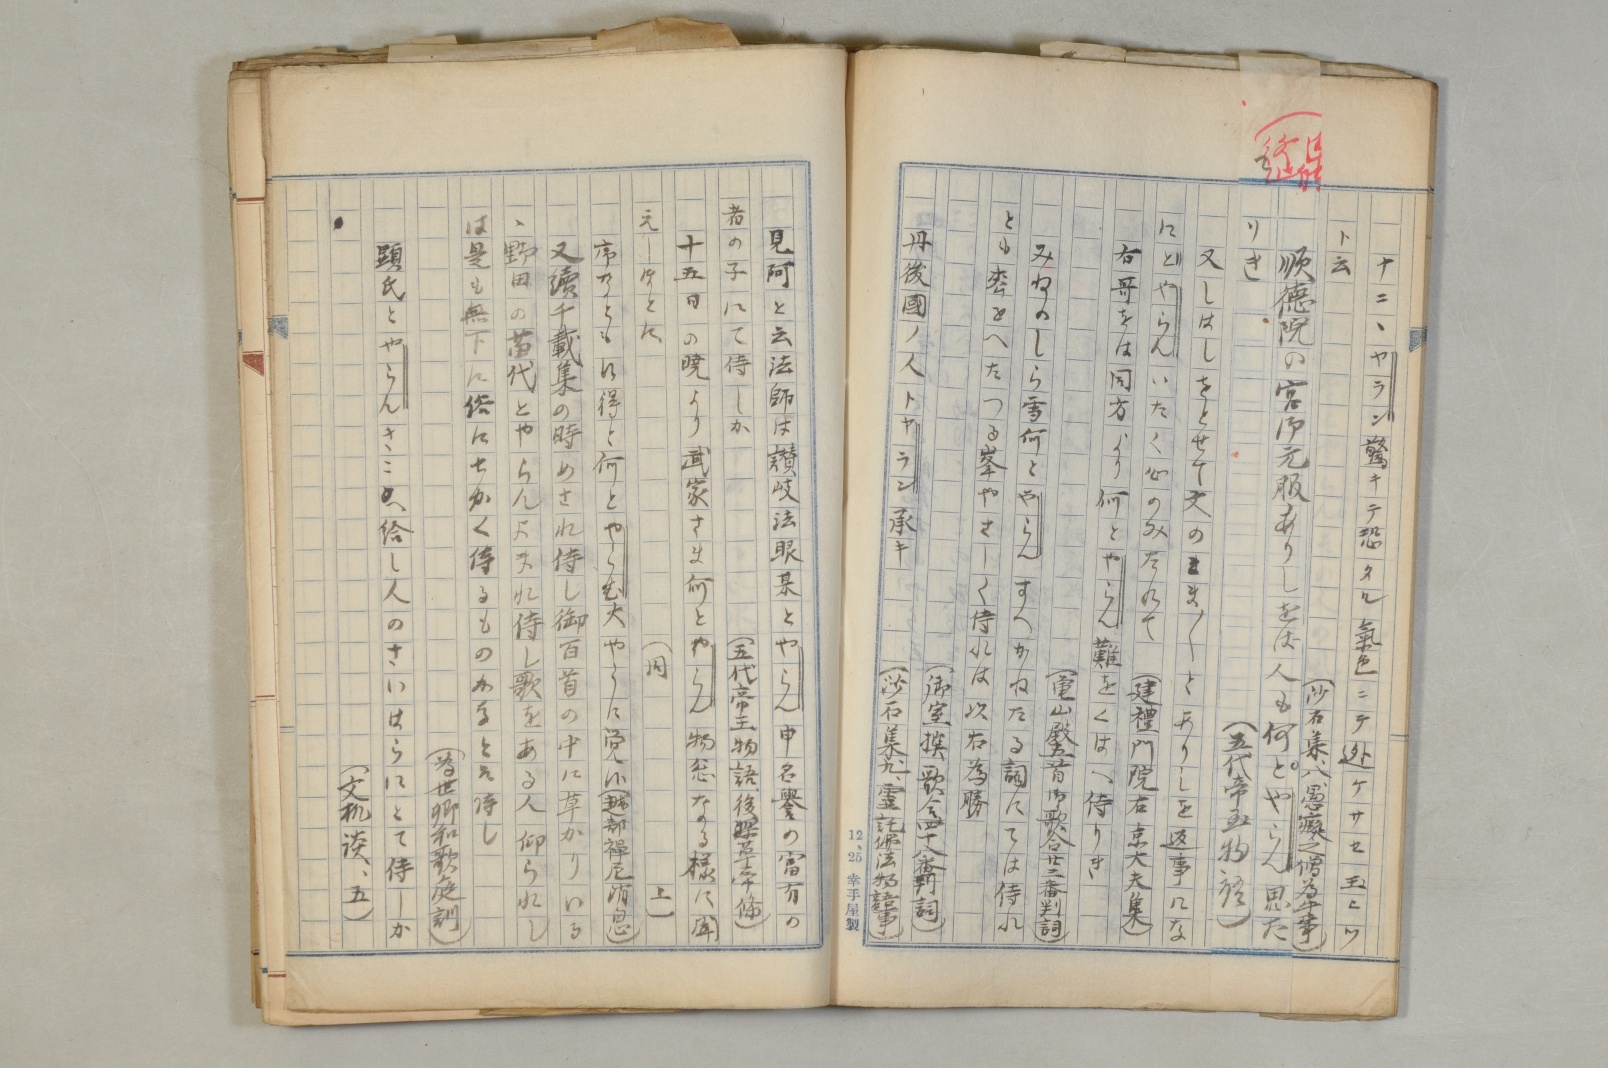 十ニ、ヤラン驚キテ恐タル氣色ニテ逊ケサセ玉ヒツ
ト云
(沙石集、八、愚癡之僧
順德院の宮御元服ありしをは人も何とやらん思た
りき
(五代帝王物語)
又しはしをとせて文のまま/\とありしを返事にな
にとやらんいたく心のみたれて
(建禮門院右京大夫集)
右哥をは同方より何とやらん難をくはへ侍りき
(亀山殿五首御歌合廿三番判詞)
みねのしら雪何とやらんすへかねたる詞にては侍れ
とも峯をへたつる峯やさしく侍れは以右為勝
(御室撰歌合四十八番判詞)
丹後國ノ人トヤラン承キ
(沙石集九、靈託佛法物語事)
12、25 幸手屋製
見阿と云法師は讃岐法眼某とやらん申名譽の富有の
者の子にて侍しか
(五代帝王物語後深草帝條)
十五日の曉より武家さま何とやらん物忩なる樣に聞
えしけとに
(同 上)
序なくとも心得と何とやらむ大やうに覚に(越部禪尼消息)
又續千載集の時めされ侍し御百首の中に草かりいる
、野田の苗代とやらんよまれ侍し歌をある人仰られし
は是も無下に俗にちかく侍るものかなとそ侍し
(為世卿和歌庭訓)
顕氏とやらんきこえ給し人のさいはらにとて侍しか
(文机談、五)